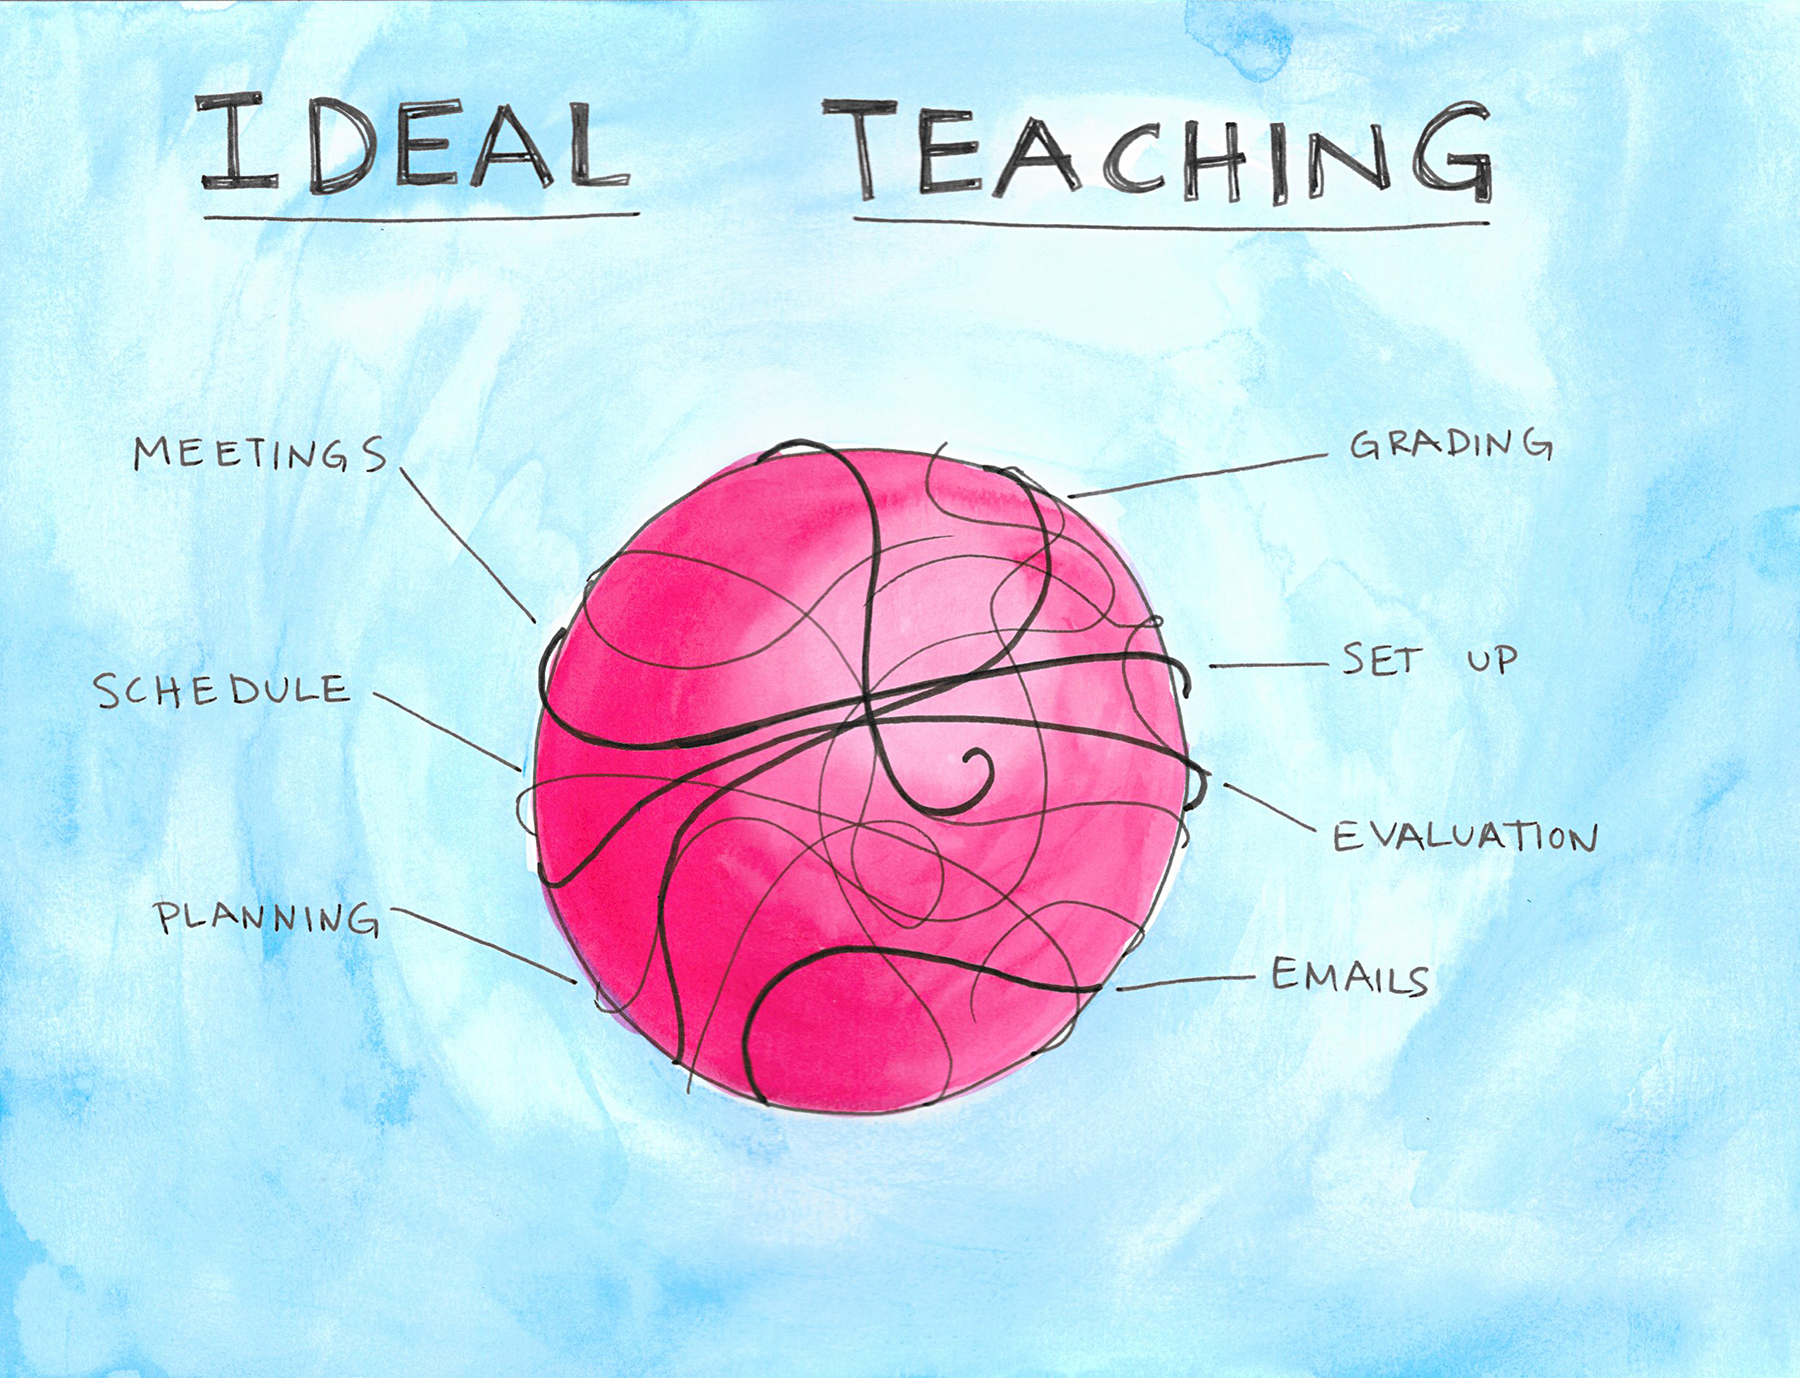 IDEAL TEACHING
MEETINGS
GRADING
SCHEDULE
SET UP
EVALUATION
PLANNING
EMAILS